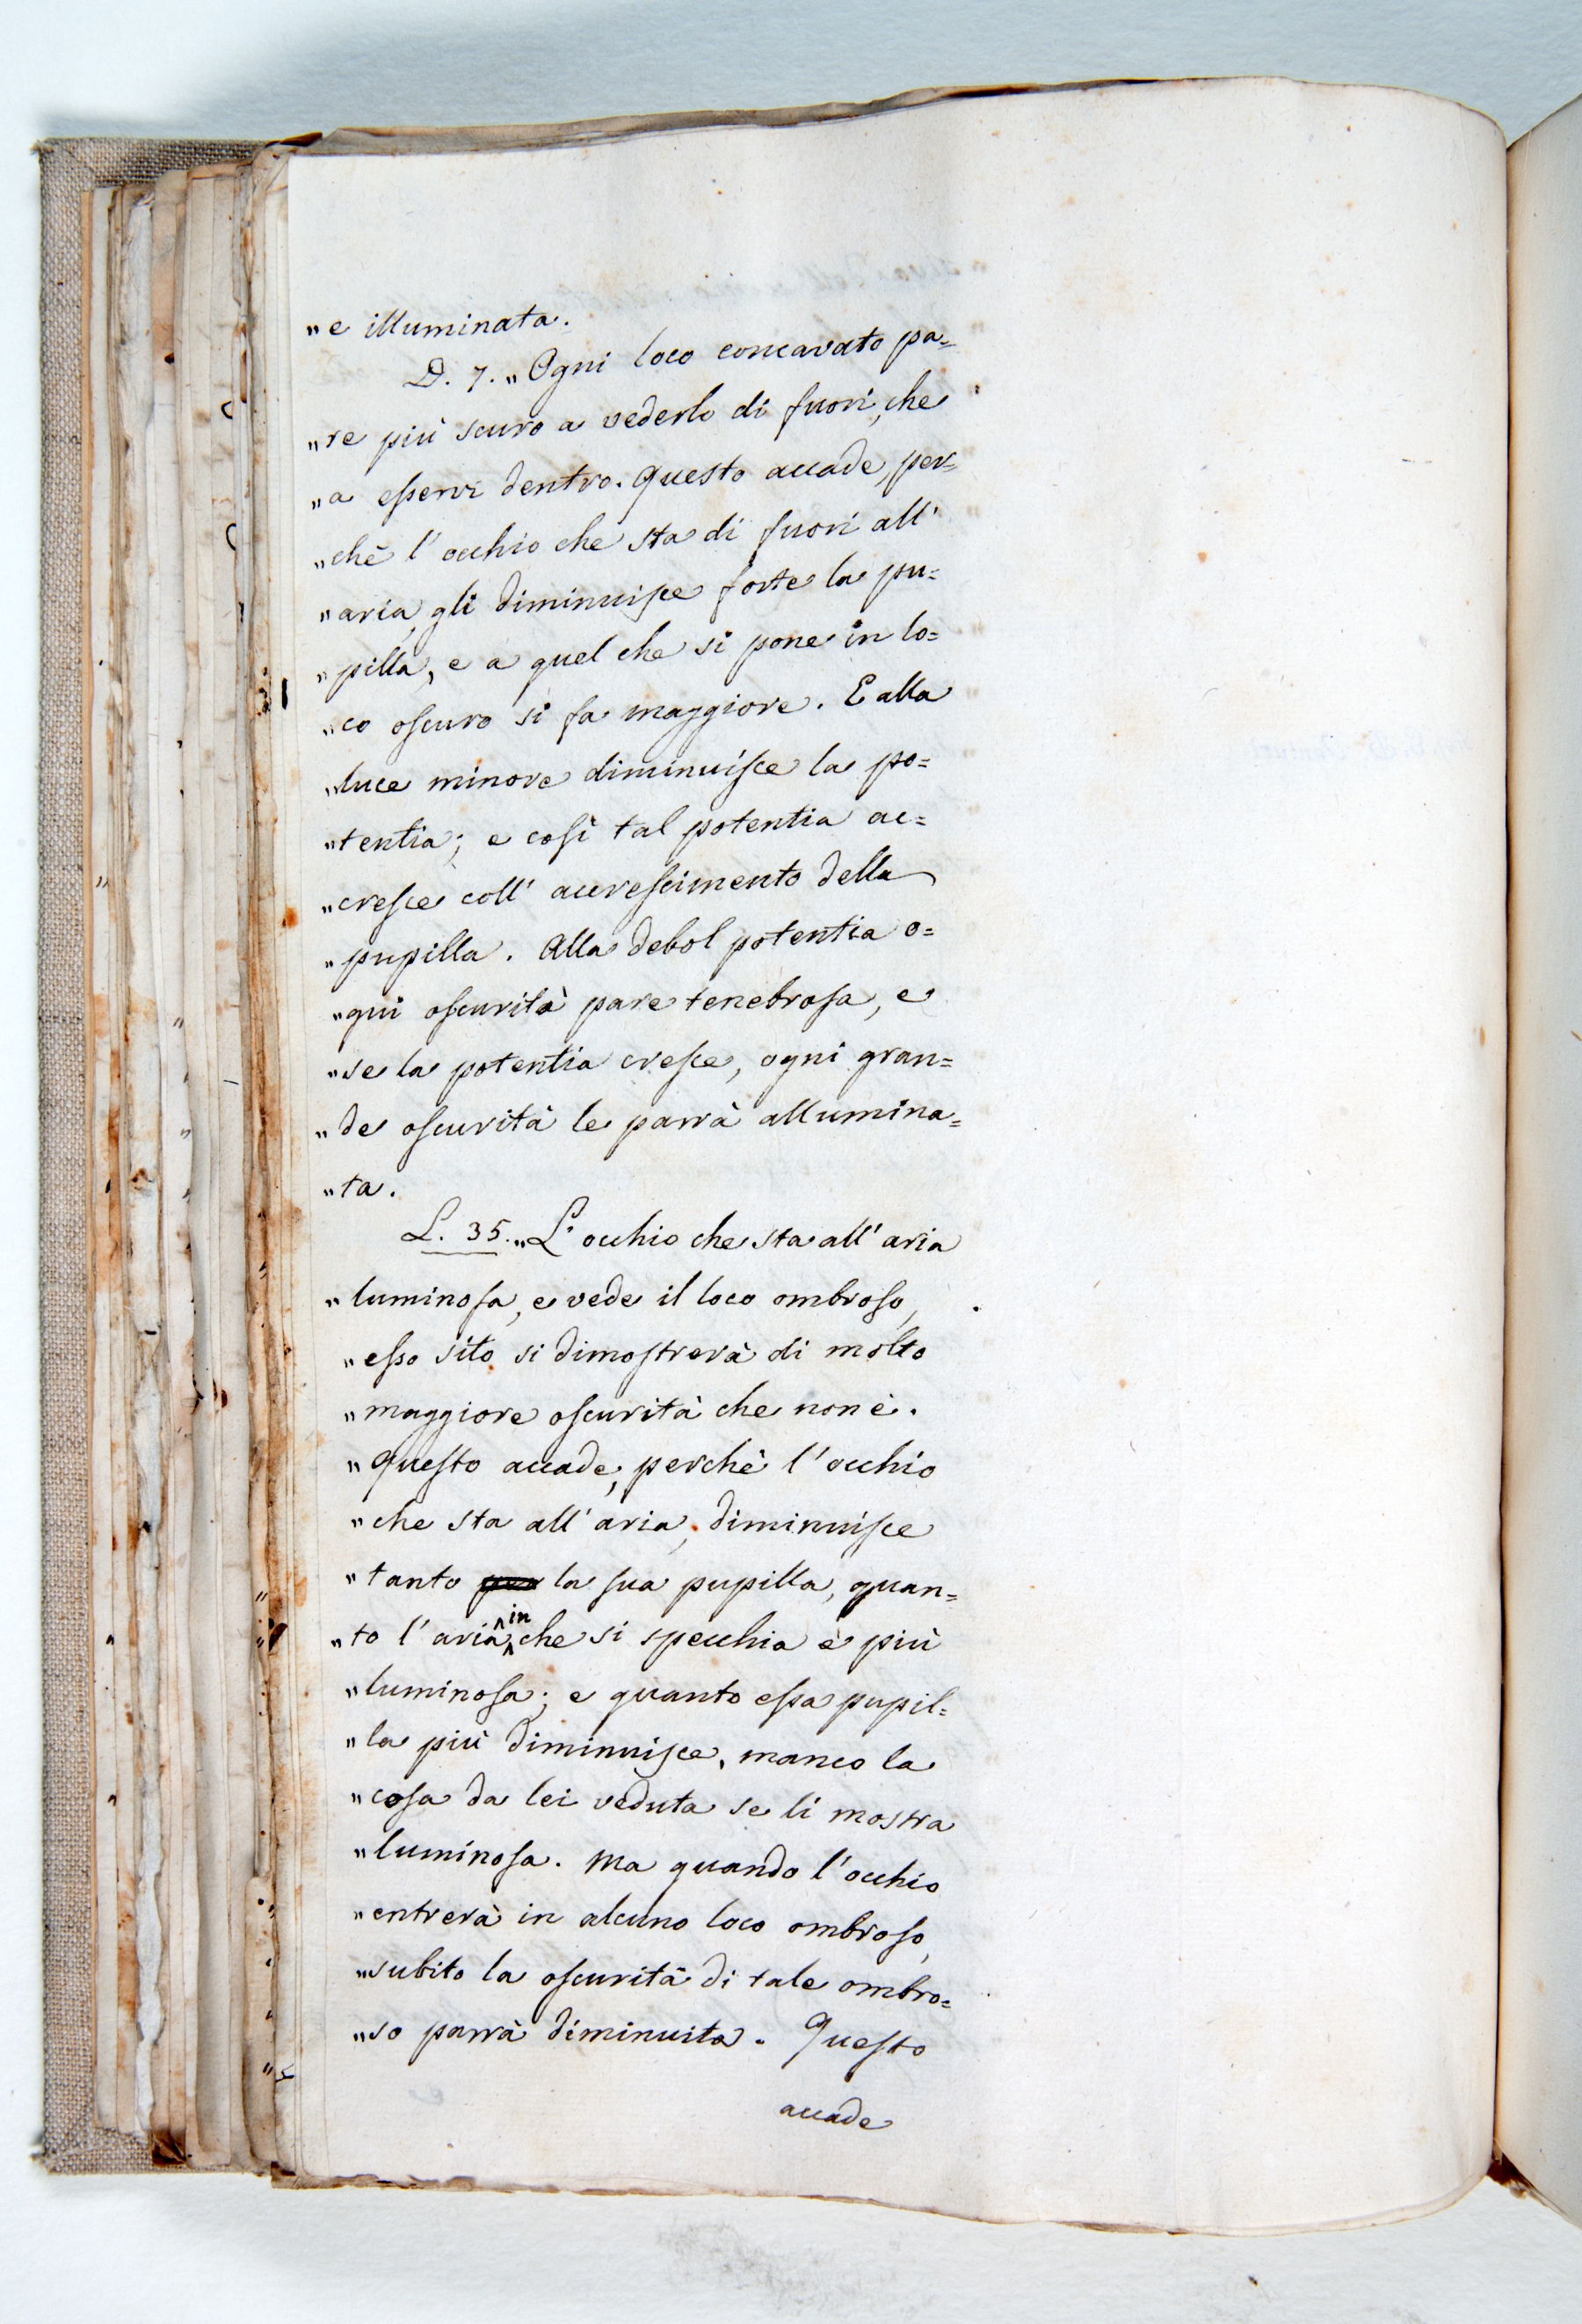 „e illuminata.
D. 7. „Ogni loco concavato pa=
„re più scuro a vederlo di fuori, che
„a eſservi dentro. Questo accade, per=
„chè l'occhio che sta di fuori all'
„aria, gli diminuiſce forte la pu=
„pilla, e a quel che si pone in lo=
„co oſcuro si fa maggiore. E alla
„luce minore diminuiſce la po=
„tentia; e coſì tal potentia ac=
„creſce coll' accreſcimento della
„pupilla. Alla debol potentia o=
„gui oſcurità pare tenebroſa, e
„se la potentia creſce, ogni gran=
„de oſcurità le parrà allumina=
„ta.
L. 35. „L'occhio che sta all'aria
„luminoſa, e vede il loco ombroſo,
„eſso sito si dimoſtrerà di molto
„maggiore oſcurità che non è.
„Queſto accade, perchè l'occhio
„che sta all'aria, diminuiſce
„tanto la ſua pupilla, quan=
„to l'aria in che si specchia è più
„luminoſa; e quanto eſsa pupil=
„la più diminuiſce, manco la
„coſa da lei veduta se li mostra
„luminoſa. Ma quando l'occhio
„entrerà in alcuno loco ombroſo,
„subito la oſcurità di tale ombro=
„so parrà diminuita. Queſto
accade